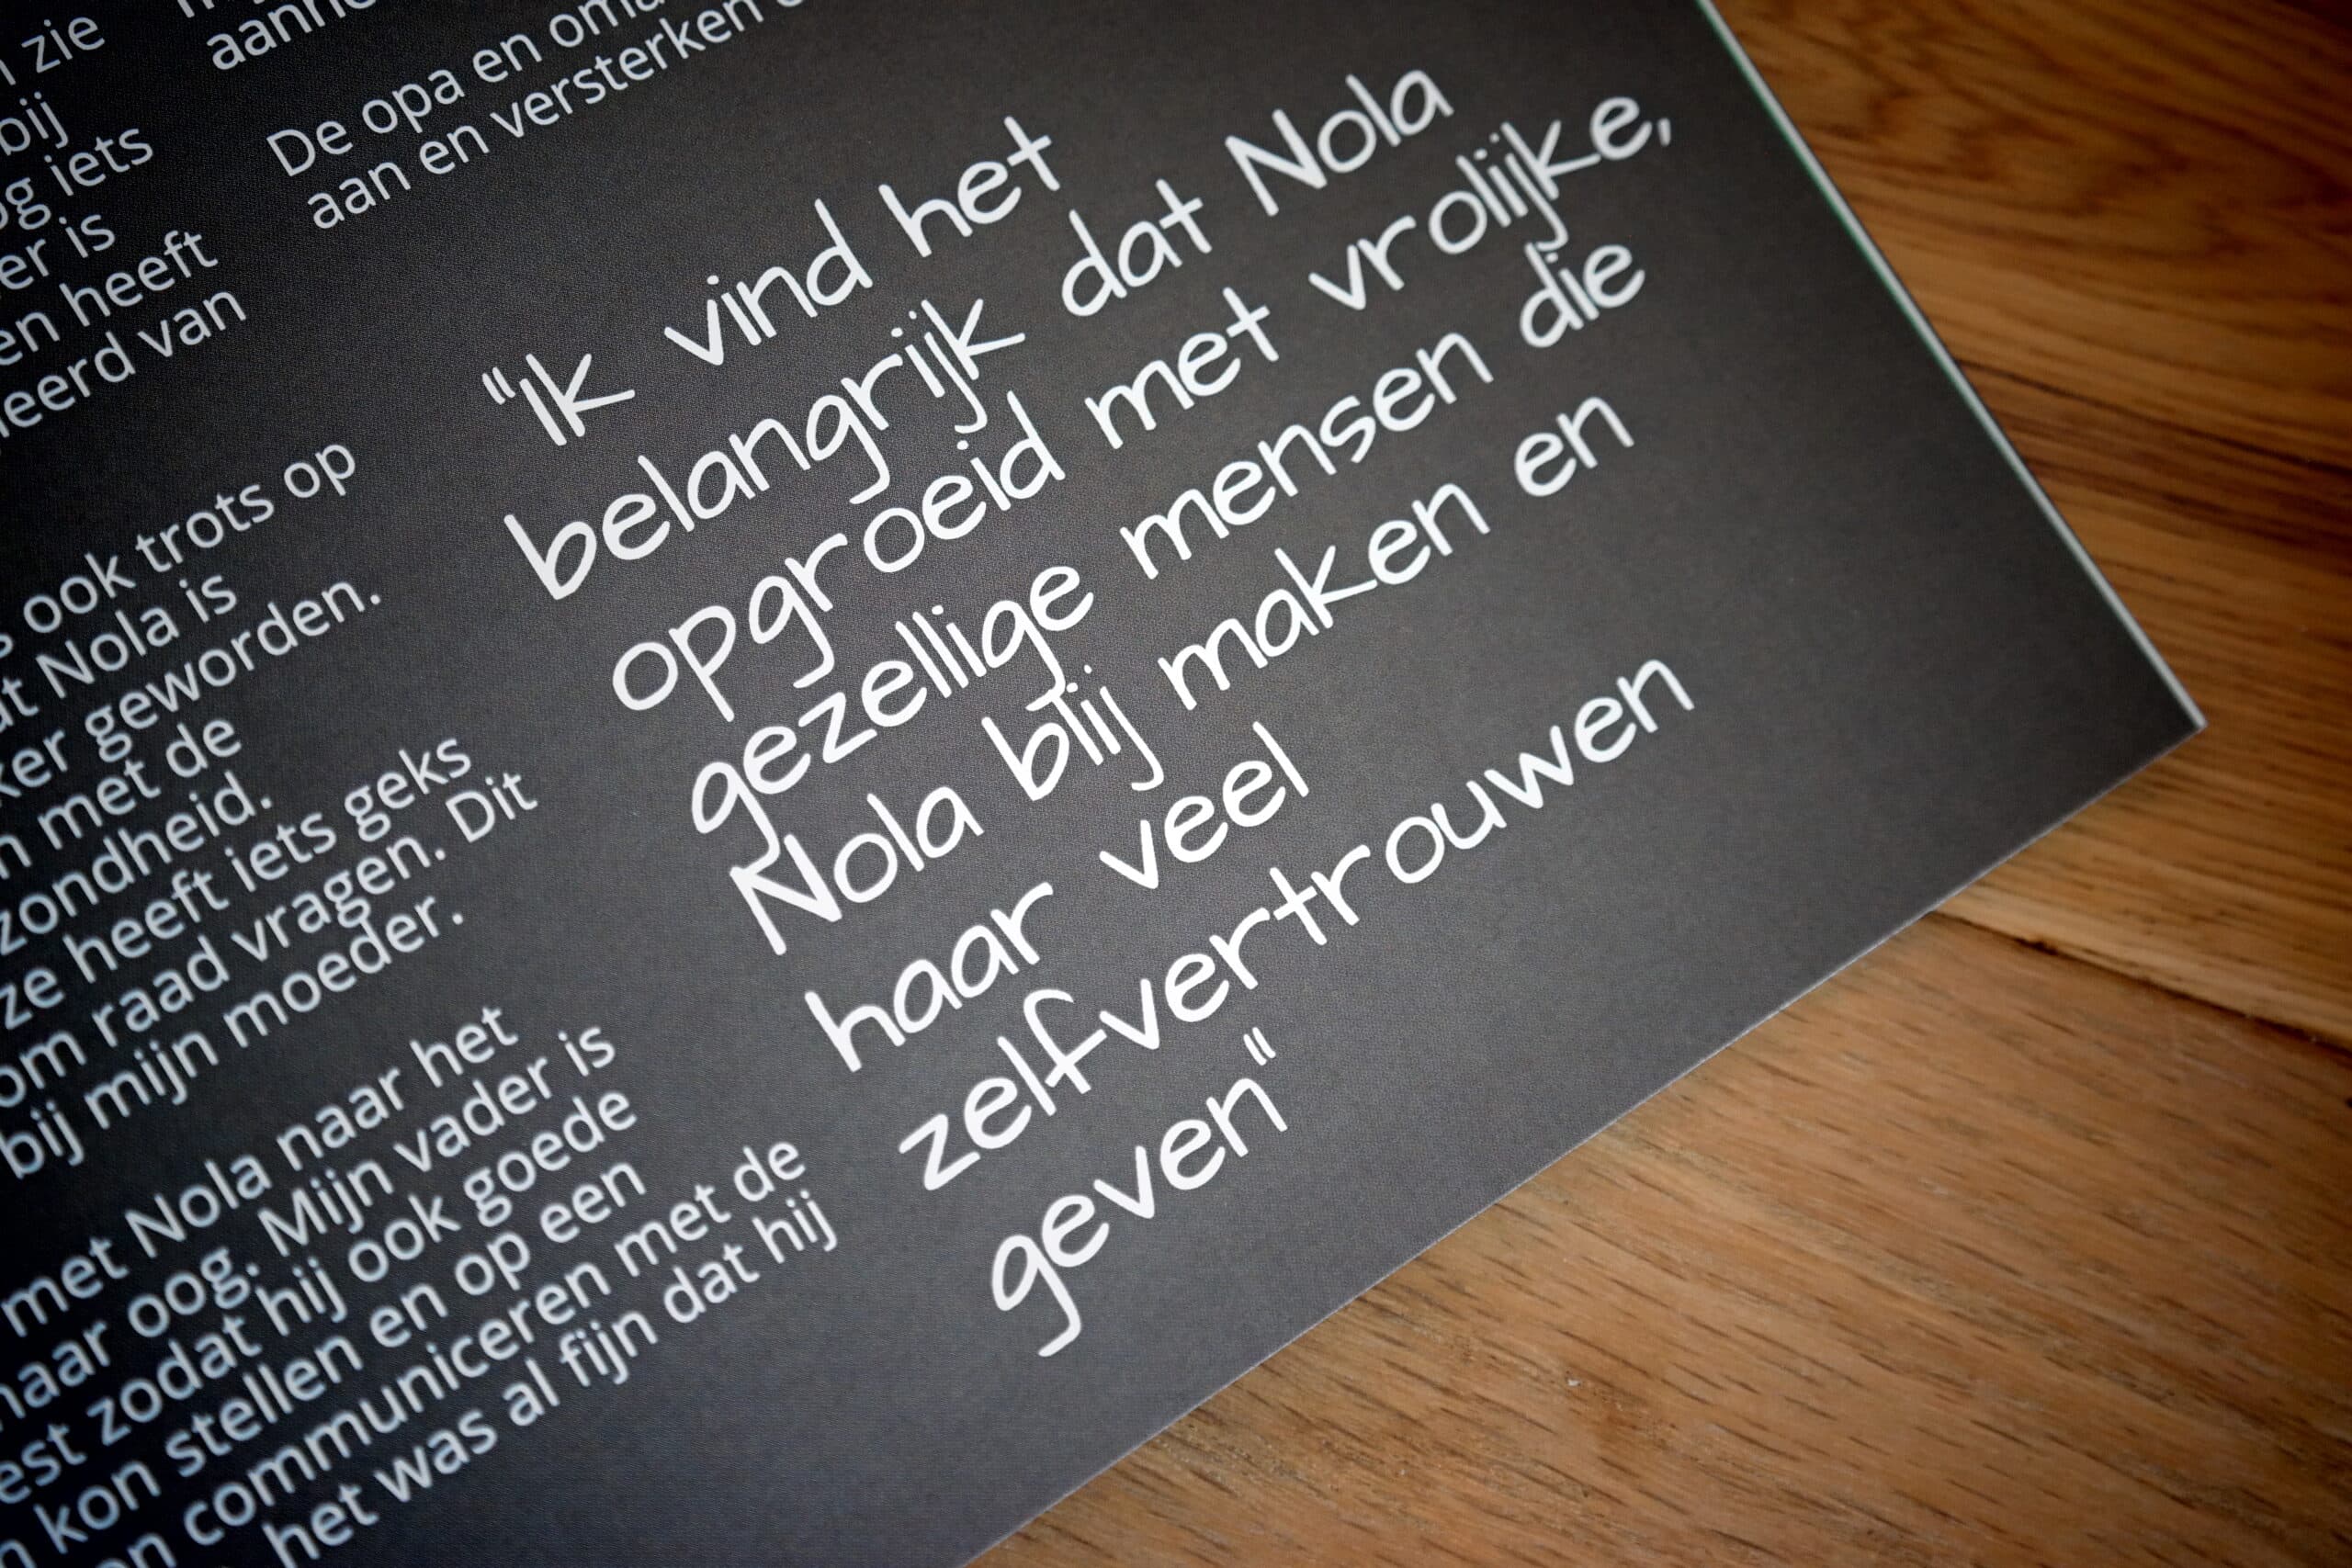 zie
bij
iets
er is
en heeft
eerd van
ook trots op
Nola is
geworden.
met de
zondheid.
ze heeft iets geks
om raad vragen. Dit
bij mijn moeder.
met Nola naar het
naar oog. Mijn vader is
est zodat hij ook goede
kon stellen en op een
communiceren met de
het was al fijn dat hij
De opa en oma
aan en versterken
"Ik vind het
belangrijk dat Nola
opgroeid met vrolijke,
gezellige mensen die
Nola blij maken en
haar veel
zelfvertrouwen
geven"